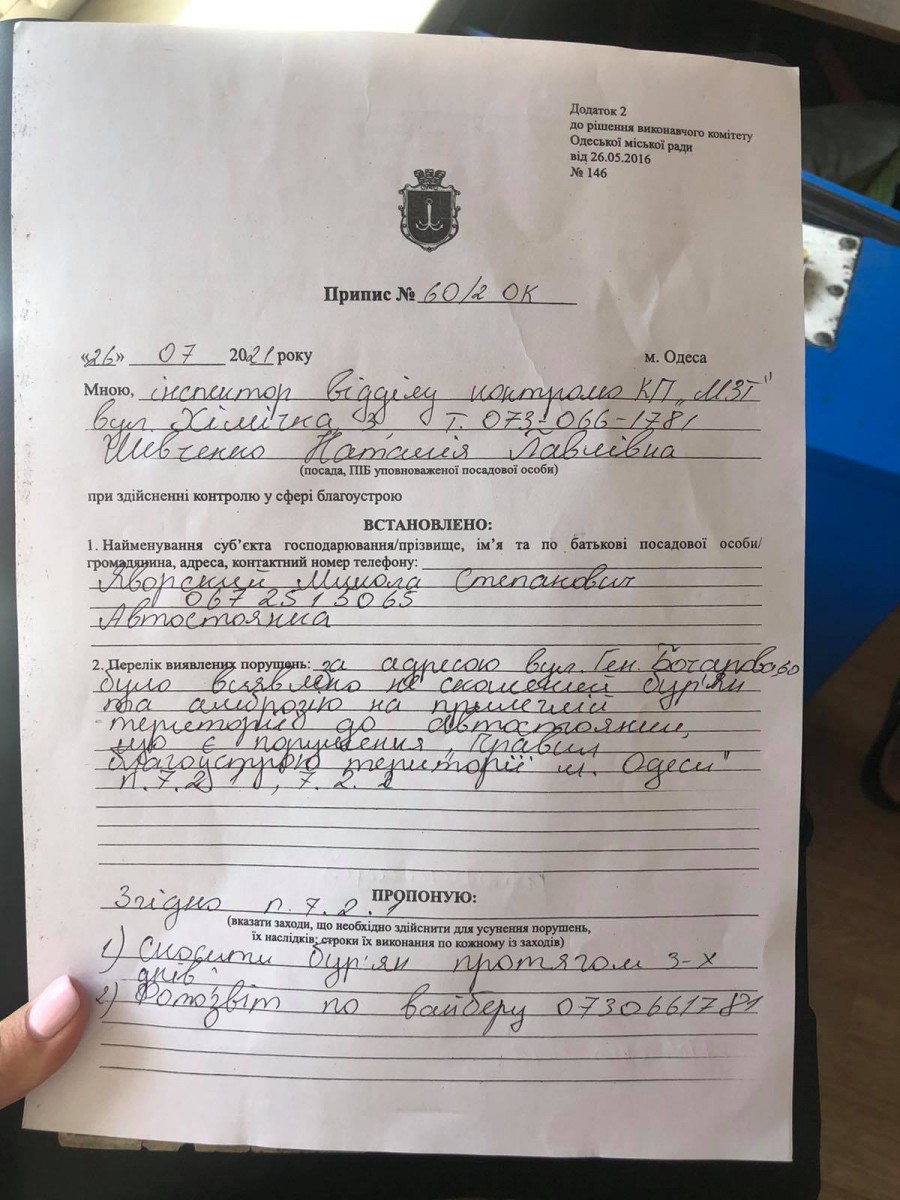 Додаток 2
до рішення виконавчого комітету
Одеської міської ради
від 26.05.2016
№ 146
Припис № 60/2 ОК
«26» 07 2021 року м. Одеса
Мною, інспектор відділу контролю КП „МЗГ"
вул. Хімічна 3 т. 073-066-1781
Шевченко Наталія Павлівна
(посада, ПІБ уповноваженої посадової особи)
при здійсненні контролю у сфері благоустрою
ВСТАНОВЛЕНО:
1. Найменування суб’єкта господарювання/прізвище, ім’я та по батькові посадової особи/
громадянина, адреса, контактний номер телефону:
Яворский Микола Степанович
067 251 5065
Автостоянка
2. Перелік виявлених порушень: за адресою вул. Ген. Бочарова, 60
було виявлено не скошений бур'ян
та амброзію на прилеглій
території до автостоянки,
що є порушення „Правил
благоустрою території м. Одеси"
п. 7.2.1, 7.2.2
ПРОПОНУЮ:
Згідно п. 7.2.1
(вказати заходи, що необхідно здійснити для усунення порушень,
їх наслідків; строки їх виконання по кожному із заходів)
1) Скосити бур'ян протягом 3-х
днів;
2) Фотозвіт по вайберу 0730661781